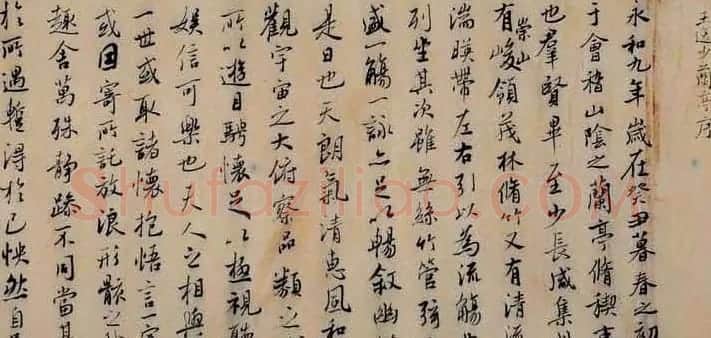 王逸少蘭亭序
永和九年歲在癸丑暮春之初
于會稽山陰之蘭亭脩稧事
也羣賢畢至少長咸集
有崇山峻領茂林脩竹又有清流
湍暎帶左右引以為流觴
列坐其次雖無絲竹管弦
盛一觴一詠亦足以暢敘幽
是日也天朗氣清惠風和
觀宇宙之大俯察品類之
所以遊目騁懷足以極視聽
娛信可樂也夫人之相與
一世或取諸懷抱悟言一室
或因寄所託放浪形骸之
趣舍萬殊靜躁不同當其
於所遇蹔得於己怏然自
shufaziliao.com